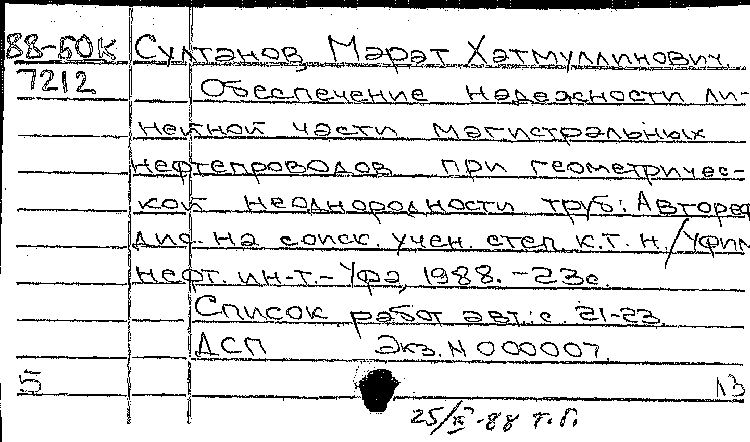 88-БОК Султанов, Марат Хатмуллинович.
7212 Обеспечение надежности ли-
нейной части магистральных
нефтепроводов при геометричес-
кой неоднородности труб: Автореф.
дис. на соиск. учен. степ. к.т.н. / Уфим.
нефт. ин-т. - Уфа, 1988. - 23 с.
Список работ авт.: с. 21-23.
ДСП Экз. N 000007.
5 13
25/ -88 т.г.